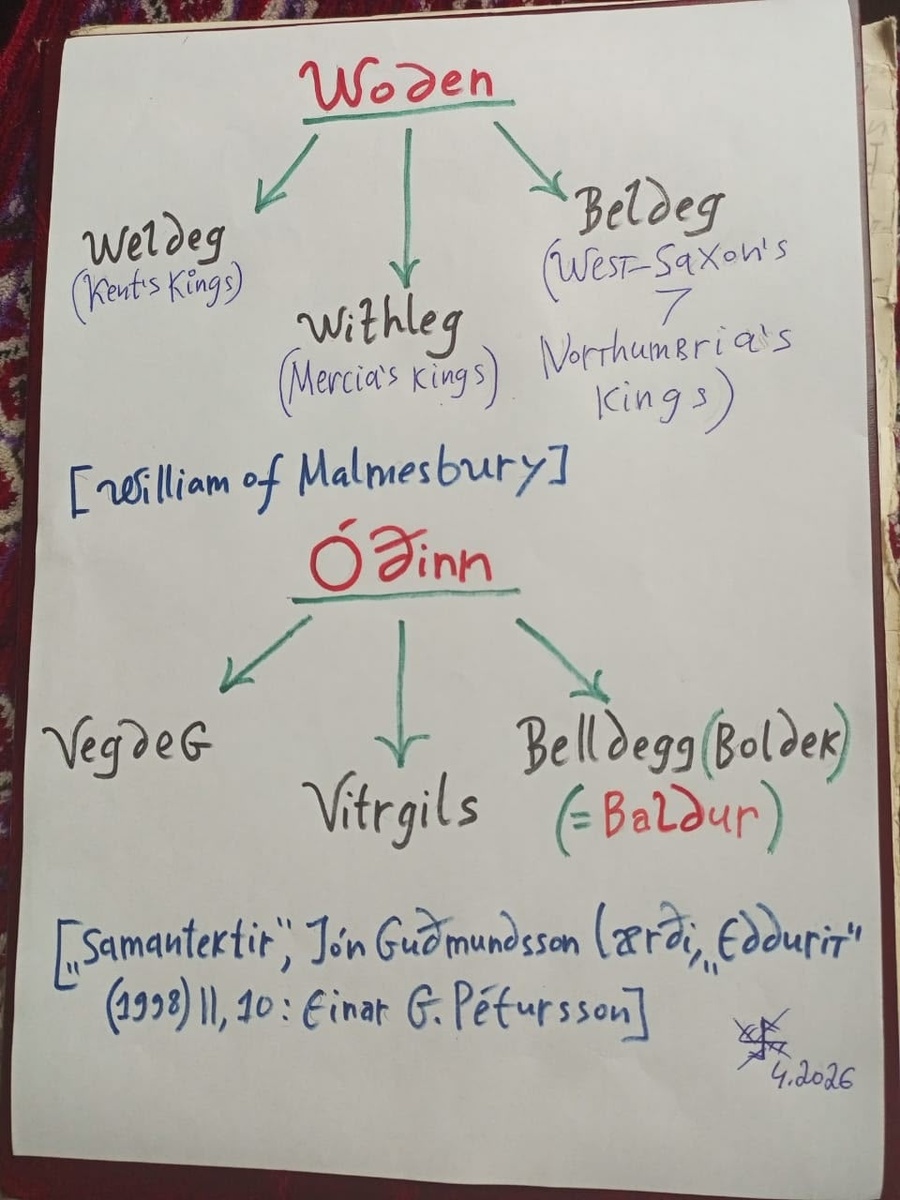 Woden
Weldeg
(Kent's Kings)
Withleg
(Mercia's kings)
Beldeg
(West-Saxon's
7
Northumbria's
kings)
[William of Malmesbury]
Óðinn
VegdeG
Vitrgils
Belldegg (Boldek)
(=Baldur)
[„Samantektir“, Jón Guðmundsson lærði, „Eddurit“
(1998) II, 10: Einar G. Pétursson]
4.2026